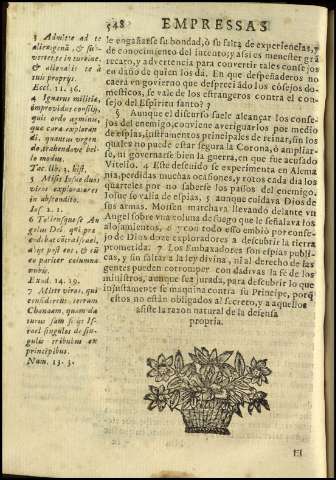 548 EMPRESSAS
3 Admitte ad te
alienigenã, & sub
vertet te in turbine,
& alienabit te à
tuis proprijs.
Eccl. 11. 36.
4 Ignarus militiæ,
improvidus consilij,
quis ordo agminis,
quæ cura explorandi,
quantus urgendo
trahendove bello
modus.
Tac. lib. 3. hist.
5 Misit Iosue duos
viros exploratores
in abscondito.
Ios. 2. 1.
6 Tollensque se An
gelus Dei, qui præ
cedebat castra Israel,
abijt post eos, & cũ
eo pariter columna
nubis.
Exod. 14. 19.
7 Mitte viros, qui
considerent terram
Chanaam, quam da
turus sum filijs Is-
rael singulos de sin-
gulis tribubus ex
principibus.
Num. 13. 3.
le engañarse su bondad, ò su falta de experiencias, y
de conocimiento del sucento; y assi es menester grã
recato, y advertencia para convertir tales consejos
en daño de quien los dà. En que despeñaderos no
caerà en govierno que despreciãdo los cõsejos do-
mesticos, se vale de los estrangeros contra el con-
sejo del Espiritu santo? 3
§ Aunque el discurso suele alcançar los conse-
jos del enemigo, conviene averiguarlos por medio
de espias, instrumentos principales de reinar, sin los
quales no puede estar segura la Corona, ò ampliar-
se, ni governarse bien la guerra, en que fue acusado
Vitello. 4 Este descuido se experimenta en Alema
nia, perdidas muchas ocasiones, y rotos cada dia los
quarteles por no saberse los passos del enemigo.
Iosue se valia de espias, 5 aunque cuidava Dios de
sus armas. Moisen marchava llevando delante un
Angel sobre vna coluna de fuego que le señalava los
alojamientos, 6 y con todo esso embiò por conse-
jo de Dios doze exploradores à descubrir la tierra
prometida: 7 Los Embaxadores son espias publi-
cas, y sin faltar a la ley divina, ni al derecho de las
gentes pueden corromper con dadivas la fè de los
ministros, aunque sea jurada, para descubrir lo que
injustamente se maquina contra su Principe, porq̃
estos no están obligados al secreto, y a aquellos
asiste la razon natural de la defensa
propria.